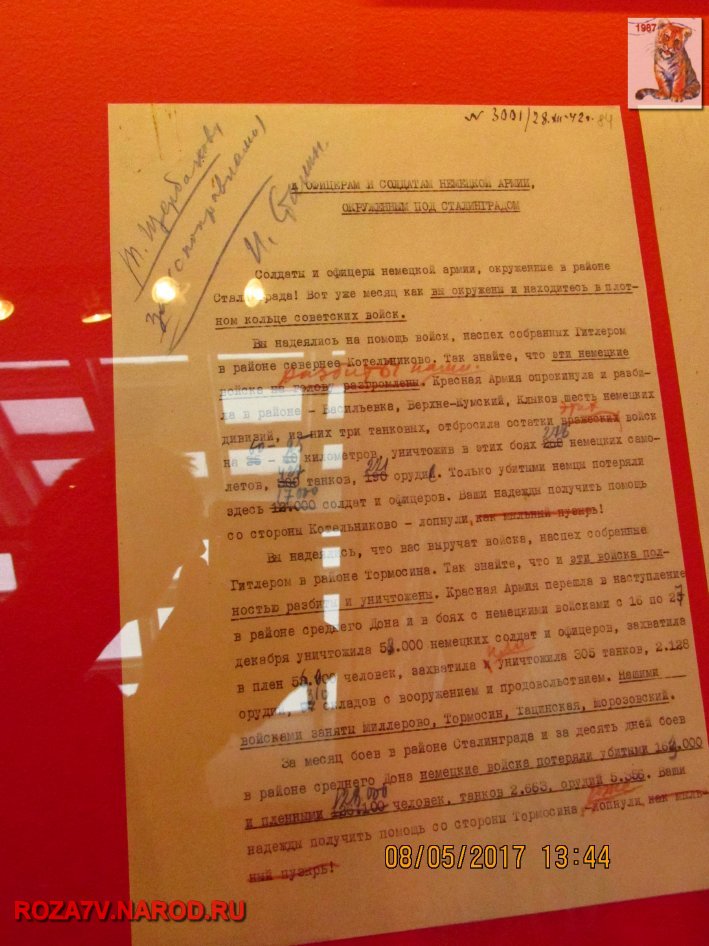 1987
N 3001/28.XII-42г. 84
Т. Щербакову
за (с поправками)
И. Сталин.
К ОФИЦЕРАМ И СОЛДАТАМ НЕМЕЦКОЙ АРМИИ,
ОКРУЖЕННЫМ ПОД СТАЛИНГРАДОМ
Солдаты и офицеры немецкой армии, окруженные в районе
Сталинграда! Вот уже месяц как вы окружены и находитесь в плот-
ном кольце советских войск.
Вы надеялись на помощь войск, наспех собранных Гитлером
в районе севернее Котельниково. Так знайте, что эти немецкие
разбиты нами.
войска на голову разгромлены. Красная Армия опрокинула и разби-
ла в районе - Васильевка, Верхне-Кумский, Клыков шесть немецких
этих
дивизий, из них три танковых, отбросила остатки вражеских войск
на 60 - 85 километров, уничтожив в этих боях 278 немецких само-
летов, 467 танков, 221 орудий. Только убитыми немцы потеряли
17000
здесь 12.000 солдат и офицеров. Ваши надежды получить помощь
со стороны Котельниково - лопнули, как мыльный пузырь!
Вы надеялись, что вас выручат войска, наспех собранные
Гитлером в районе Тормосина. Так знайте, что и эти войска пол-
ностью разбиты и уничтожены. Красная Армия перешла в наступление
в районе среднего Дона и в боях с немецкими войсками с 16 по 27
декабря уничтожила 000 немецких солдат и офицеров, захватила
или
в плен человек, захватила и уничтожила 305 танков, 2.128
310
орудий, складов с вооружением и продовольствием. Нашими
войсками заняты Миллерово, Тормосин, Тацинская, Морозовский.
За месяц боев в районе Сталинграда и за десять дней боев
в районе среднего Дона немецкие войска потеряли убитыми 000
128.000
и пленными человек, танков 2.663, орудий 5.386. Ваши
надежды получить помощь со стороны Тормосина - лопнули, как мыль-
ный пузырь!
08/05/2017 13:44
ROZA7V.NAROD.RU